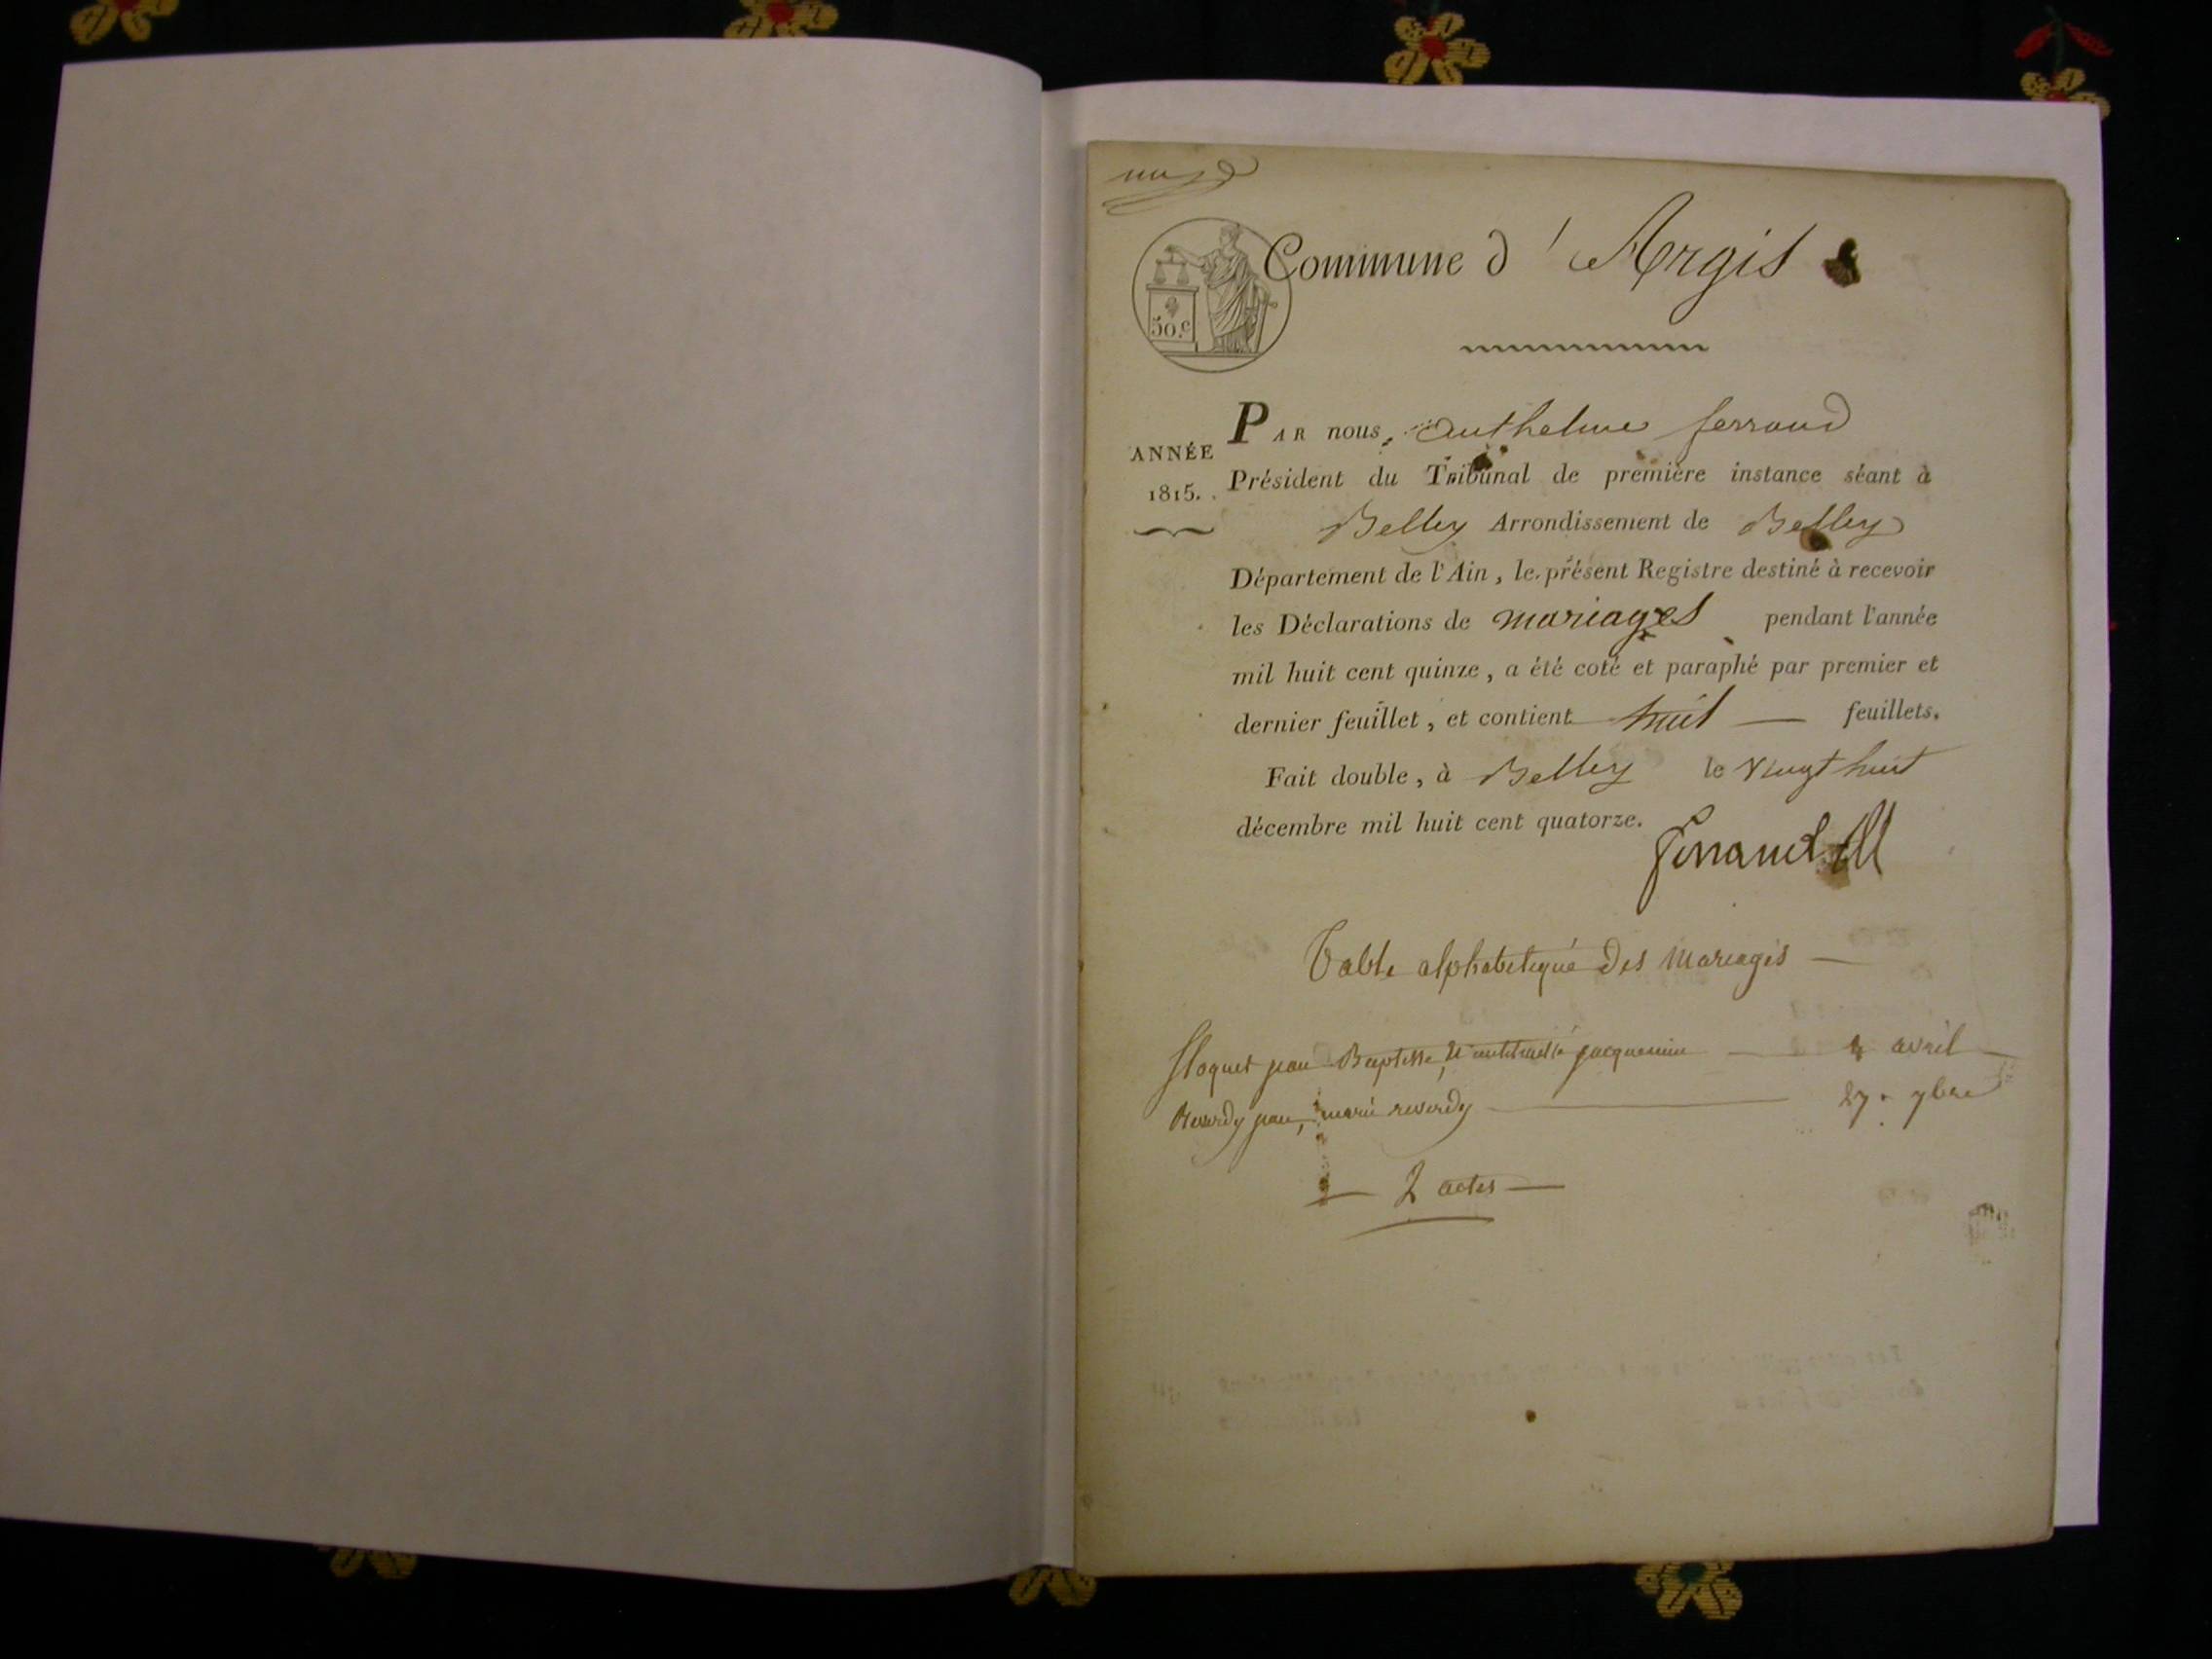 Commune d'Argis
50.c
ANNÉE
1815.
PAR nous, anthelme ferrand
Président du Tribunal de première instance séant à
Belley Arrondissement de Belley
Département de l'Ain, le présent Registre destiné à recevoir
les Déclarations de mariages pendant l'année
mil huit cent quinze, a été coté et paraphé par premier et
dernier feuillet, et contient huit feuillets.
Fait double, à Belley le vingt huit
décembre mil huit cent quatorze.
ferrand
Table alphabetique des mariages
jean Baptiste, jacquemin 4 avril
Reverdy jean, marie reverdy 27. 9bre
2 actes